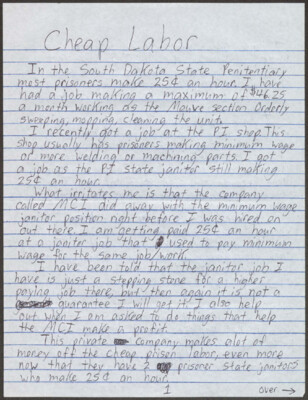 Cheap Labor
In the South Dakota State Penitentiary
most prisoners make 25¢ an hour. I have
had a job making a maximum of $46.25
a month working as the Mauve section Orderly
sweeping, mopping, cleaning the unit.
I recently got a job at the PI shop. This
shop usually has prisoners making minimum wage
or more welding or machining parts. I got
a job as the PI state janitor still making
25¢ an hour.
What irritates me is that the company
called MCI did away with the minimum wage
janitor position right before I was hired on
out there. I am getting paid 25¢ an hour
at a janitor job that used to pay minimum
wage for the same job/work.
I have been told that the janitor job I
have is just a stepping stone for a higher
paying job there, but then again it is not a
guarantee I will get it. I also help
out when I am asked to do things that help
the MCI make a profit.
This private company makes alot of
money off the cheap prison labor, even more
now that they have 2 prisoner state janitors
who make 25¢ an hour.
1
over →